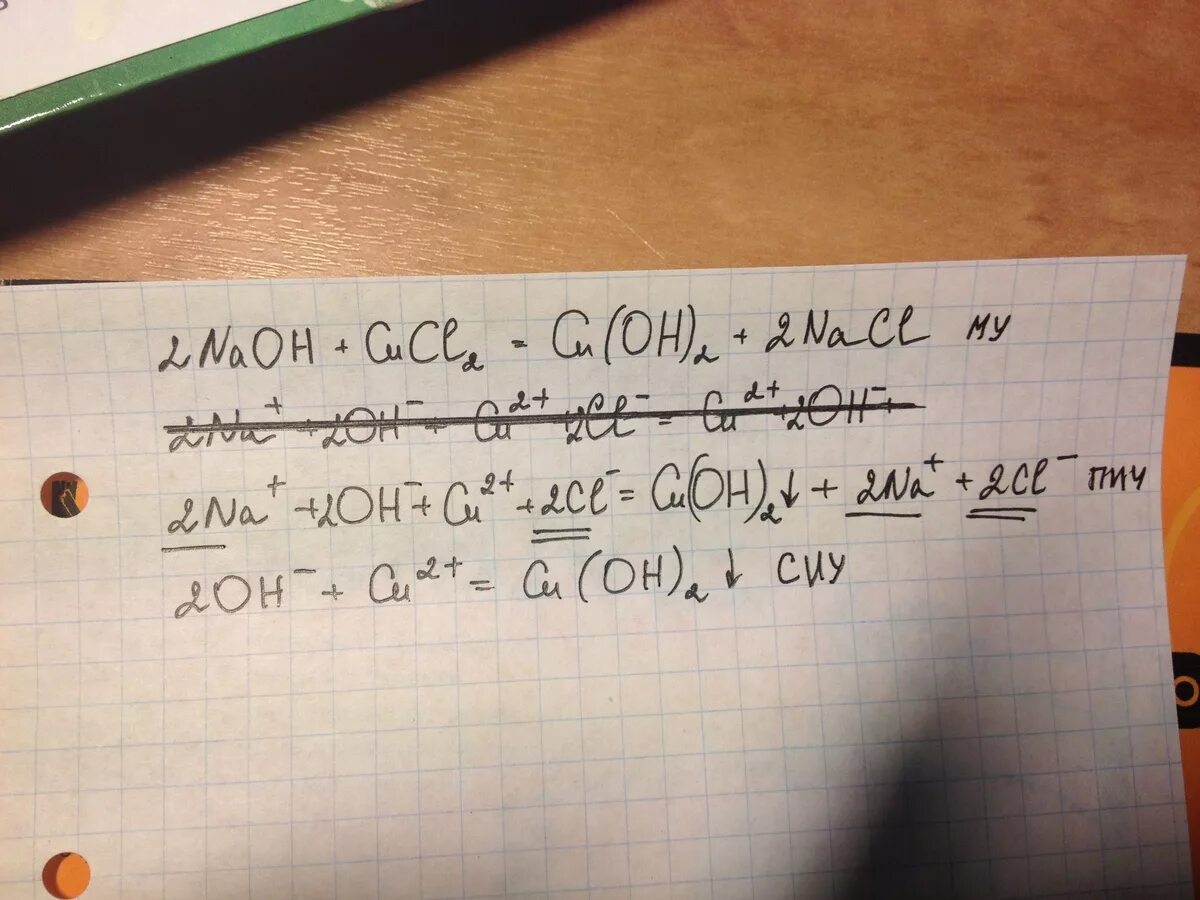 2NaOH + CuCl₂ = Cu(OH)₂ + 2NaCl МУ
2Na⁺ + 2OH⁻ + Cu²⁺ 2Cl⁻ = Cu²⁺ + 2OH⁻ +
2Na⁺ + 2OH⁻ + Cu²⁺ + 2Cl⁻ = Cu(OH)₂↓ + 2Na⁺ + 2Cl⁻
2OH⁻ + Cu²⁺ = Cu(OH)₂↓ СИУ